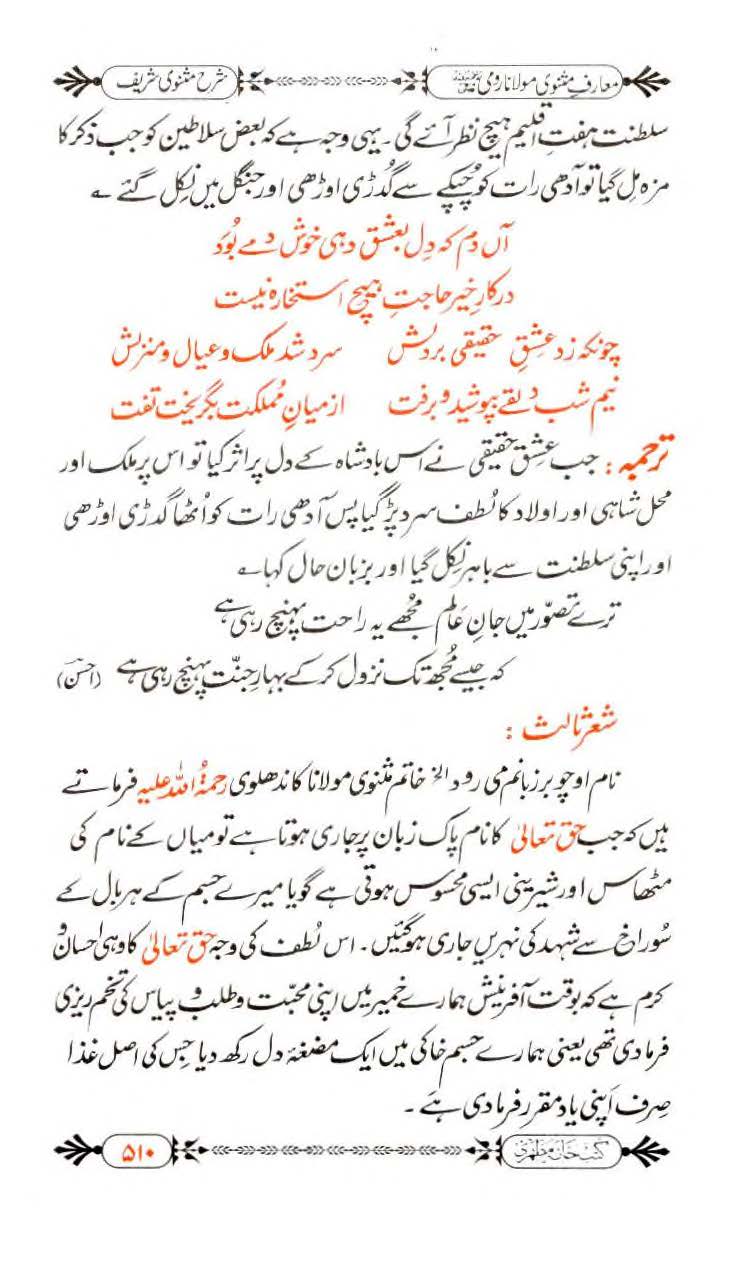 معارفِ مثنوی مولانا رومی
شرح مثنوی شریف
سلطنت ہفت اقلیم ہیچ نظر آئے گی۔ یہی وجہ ہے کہ بعض سلاطین کو جب ذکر کا
مزہ مِل گیا تو آدھی رات کو چُپکے سے گدڑی اوڑھی اور جنگل میں نِکل گئے ؎
آں دَم کہ دِل بعشق دہی خوش دمے بُوَد
درکارِ خیر حاجتِ ہیچ استخارہ نیست
چونکہ زد عِشقِ حقیقی بردلش سرد شد ملک و عیال و منزلش
نیم شب دلقے بپوشید و برفت از میانِ مُملکت بگریخت تفت
ترجمہ : جب عِشق حقیقی نے اس بادشاہ کے دل پر اثر کیا تو اس پر ملک اور
محل شاہی اور اولاد کا لُطف سرد پڑ گیا پس آدھی رات کو اُٹھا گدڑی اوڑھی
اور اپنی سلطنت سے باہر نِکل گیا اور بزبان حال کہا ؎
ترے تصوّر میں جانِ عَالم مُجھے یہ راحت پہنچ رہی ہے
کہ جیسے مُجھ تک نزول کر کے بہارِ جنّت پہنچ رہی ہے (احسنؔ)
شعر ثالث :
نام او چو بر زبانم می رود الخ خاتم مثنوی مولانا کاندھلوی رحمۃُ اللہ علیہ فرماتے
ہیں کہ جب حق تعالیٰ کا نام پاک زبان پر جاری ہوتا ہے تو میاں کے نام کی
مٹھاس اور شیرینی ایسی محسوس ہوتی ہے گویا میرے جسم کے ہر بال کے
سُوراخ سے شہد کی نہریں جاری ہوگئیں۔ اس لُطف کی وجہ حق تعالیٰ کا وہی احسان و
کرم ہے کہ بوقت آفرینش ہمارے خمیر میں اپنی محبّت و طلب و پیاس کی تخم ریزی
فرما دی تھی یعنی ہمارے جسم خاکی میں ایک مضغۂ دل رکھ دیا جِس کی اصل غذا
صِرف اَپنی یاد مقرر فرما دی ہے ۔
کتب خانہ مظہری
۵۱۰